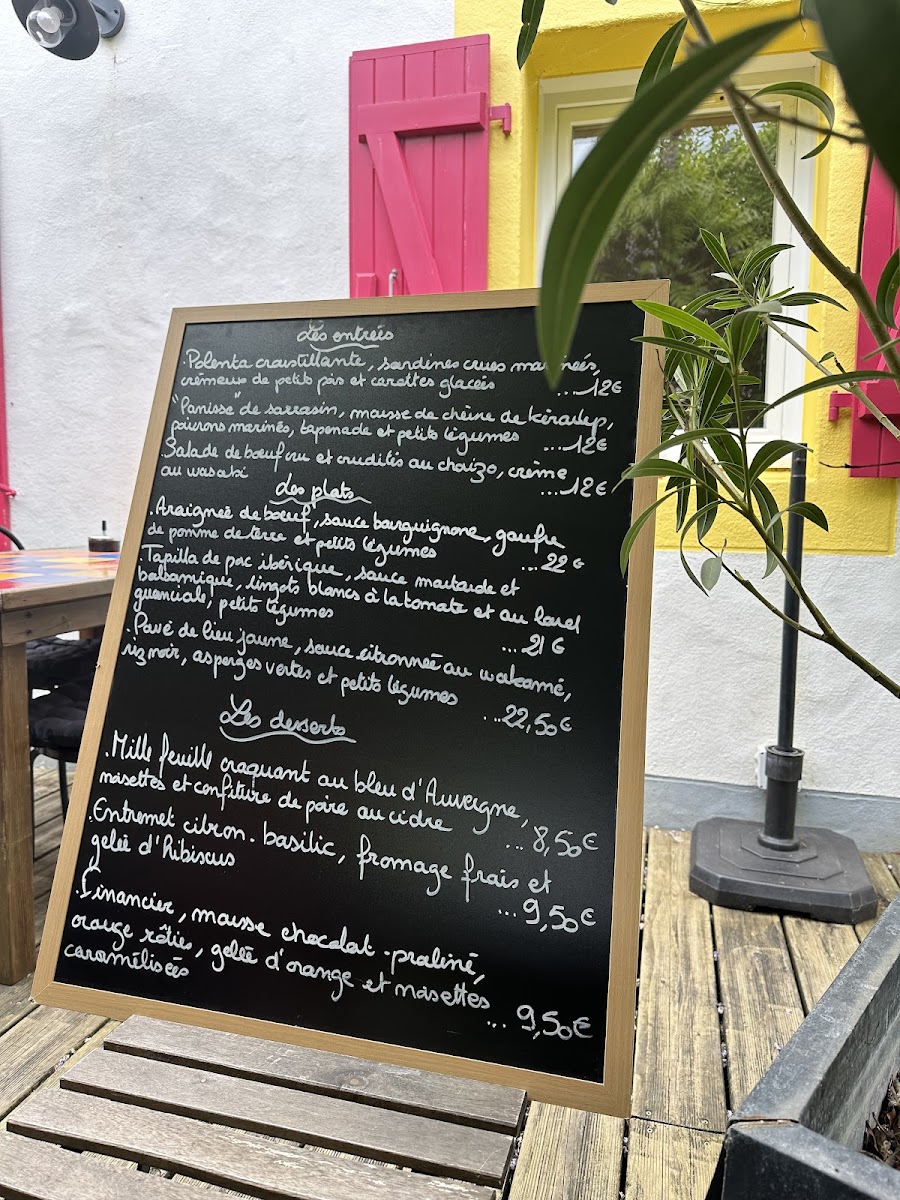 Les entrées
. Polenta croustillante, sardines crues marinées,
crémeux de petits pois et carottes glacées
...12€
. "Panisse" de sarrasin, mousse de chèvre de
poivrons marinés, tapenade et petits légumes
...12€
. Salade de bœuf cru et crudités au chorizo, crème
au wasabi
...12€
Les plats
. Araignée de bœuf, sauce bourguignonne, gaufre
de pomme de terre et petits légumes
...22€
. Tapilla de porc ibérique, sauce moutarde et
balsamique, lingots blancs à la tomate et au lard
guanciale, petits légumes
...21€
. Pavé de lieu jaune, sauce citronnée au wakamé,
riz noir, asperges vertes et petits légumes
...22,50€
Les desserts
. Mille feuille craquant au bleu d'Auvergne,
noisettes et confiture de poire au cidre
...8,50€
. Entremet citron-basilic, fromage frais et
gelée d'hibiscus
...9,50€
. Financier, mousse chocolat-praliné,
orange rôtie, gelée d'orange et noisettes
caramélisées
...9,50€